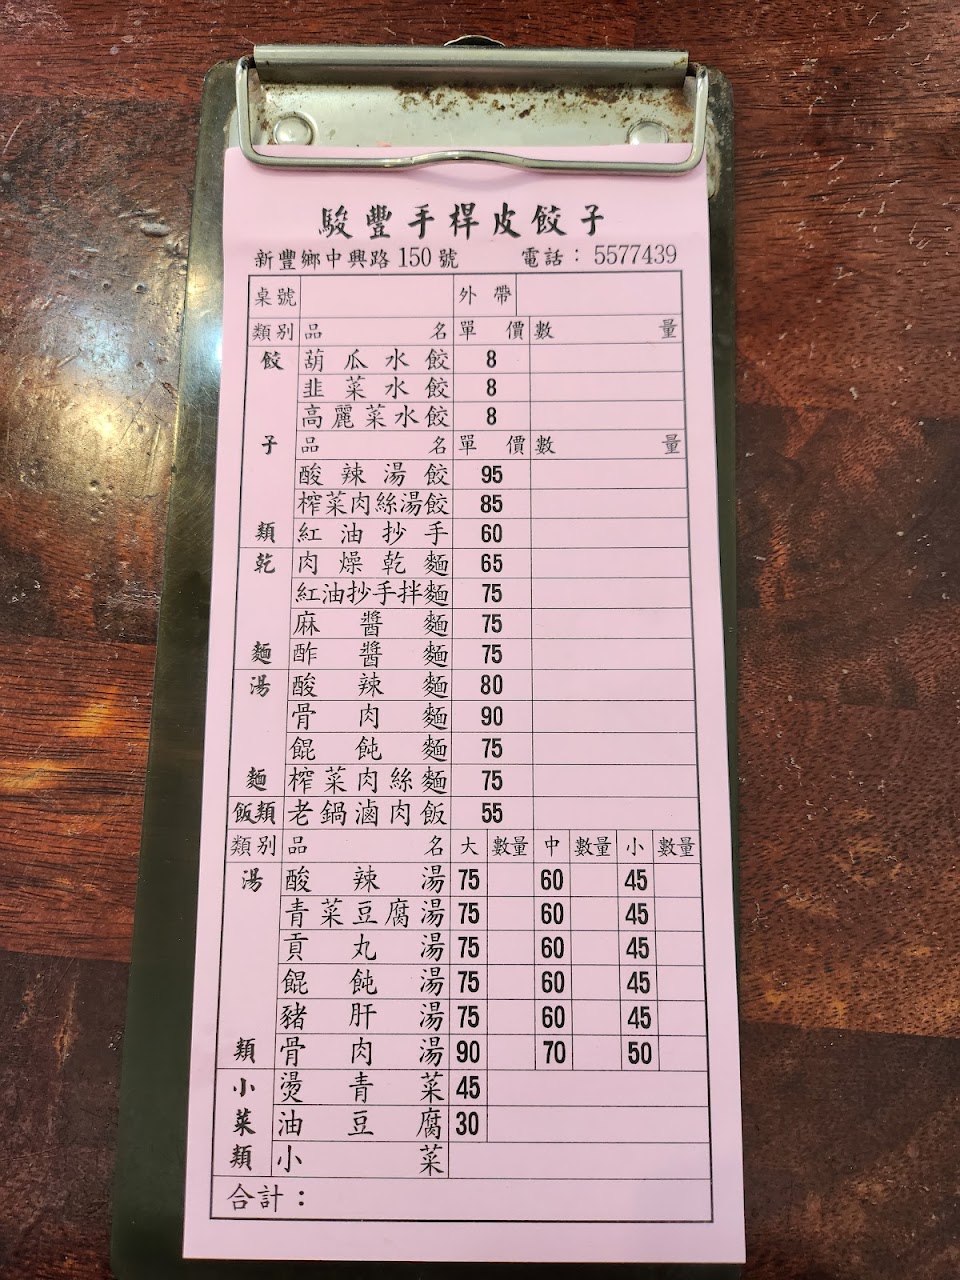 駿豐手桿皮餃子
新豐鄉中興路150號 電話：5577439
桌號 外帶
類別 品名 單價 數量
餃 葫瓜水餃 8
韭菜水餃 8
高麗菜水餃 8
子 品名 單價 數量
酸辣湯餃 95
榨菜肉絲湯餃 85
類 紅油抄手 60
乾 肉燥乾麵 65
紅油抄手拌麵 75
麻醬麵 75
麵 酢醬麵 75
湯 酸辣麵 80
骨肉麵 90
餛飩麵 75
麵 榨菜肉絲麵 75
飯類 老鍋滷肉飯 55
類別 品名 大 數量 中 數量 小 數量
湯 酸辣湯 75 60 45
青菜豆腐湯 75 60 45
貢丸湯 75 60 45
餛飩湯 75 60 45
豬肝湯 75 60 45
類 骨肉湯 90 70 50
小 燙青菜 45
菜 油豆腐 30
類 小菜
合計：